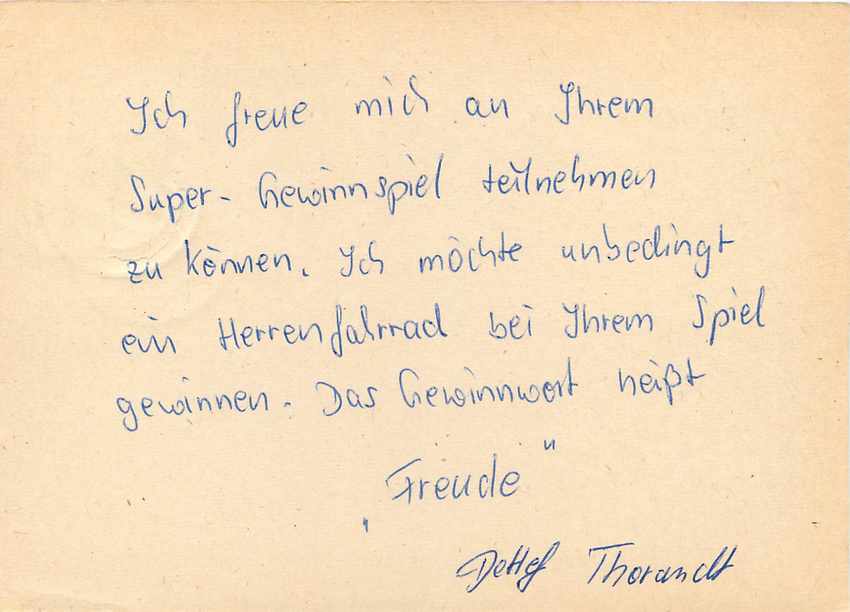 Ich freue mich an Ihrem
Super-Gewinnspiel teilnehmen
zu können. Ich möchte unbedingt
ein Herrenfahrrad bei Ihrem Spiel
gewinnen. Das Gewinnwort heißt
„Freude"
Detlef Thorandt